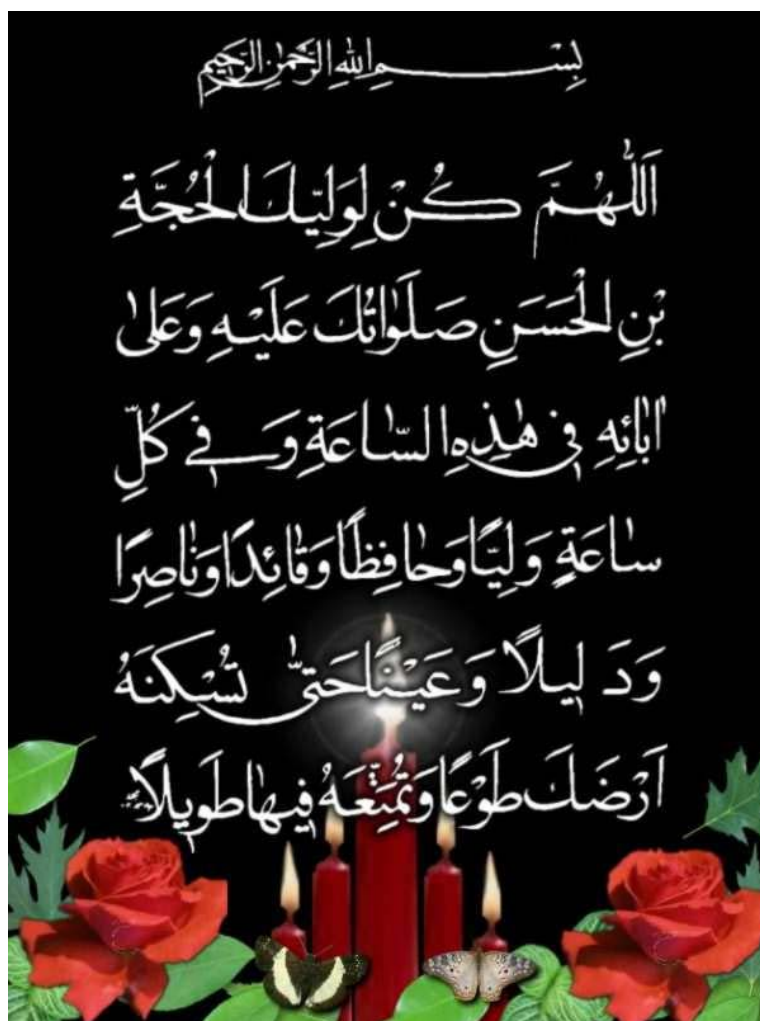 بِسْمِ اللهِ الرَّحْمٰنِ الرَّحِيمِ
اَللّٰهُمَّ كُنْ لِوَلِيِّكَ الْحُجَّةِ
بْنِ الْحَسَنِ صَلَوٰاتُكَ عَلَيْهِ وَعَلىٰ
اٰبٰائِهِ فِي هٰذِهِ السّٰاعَةِ وَفِي كُلِّ
سٰاعَةٍ وَلِيًّا وَحٰافِظًا وَقٰائِدًا وَنٰاصِرًا
وَدَلِيلًا وَعَيْنًا حَتّىٰ تُسْكِنَهُ
اَرْضَكَ طَوْعًا وَتُمَتِّعَهُ فِيهٰا طَوِيلًا